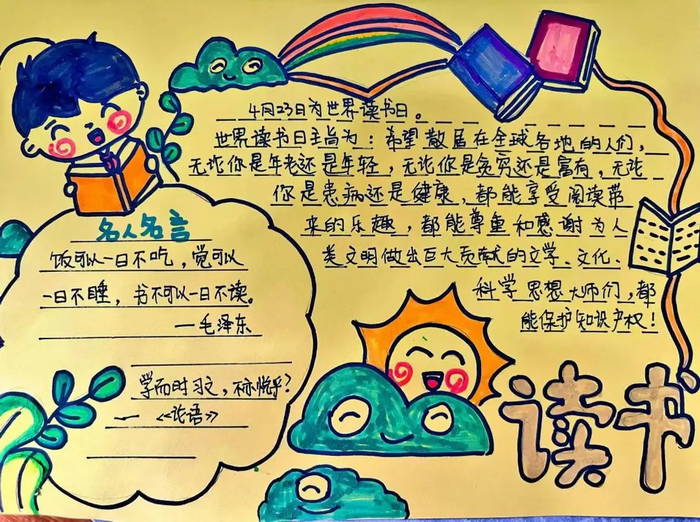 4月23日为世界读书日。
世界读书日主旨为：希望散居在全球各地的人们，
无论你是年老还是年轻，无论你是贫穷还是富有，无论
你是患病还是健康，都能享受阅读带
来的乐趣，都能尊重和感谢为人
类文明做出巨大贡献的文学、文化、
科学思想大师们，都
能保护知识产权！
名人名言
饭可以一日不吃，觉可以
一日不睡，书不可以一日不读。
—毛泽东
学而时习之，亦悦乎？
—《论语》
读书